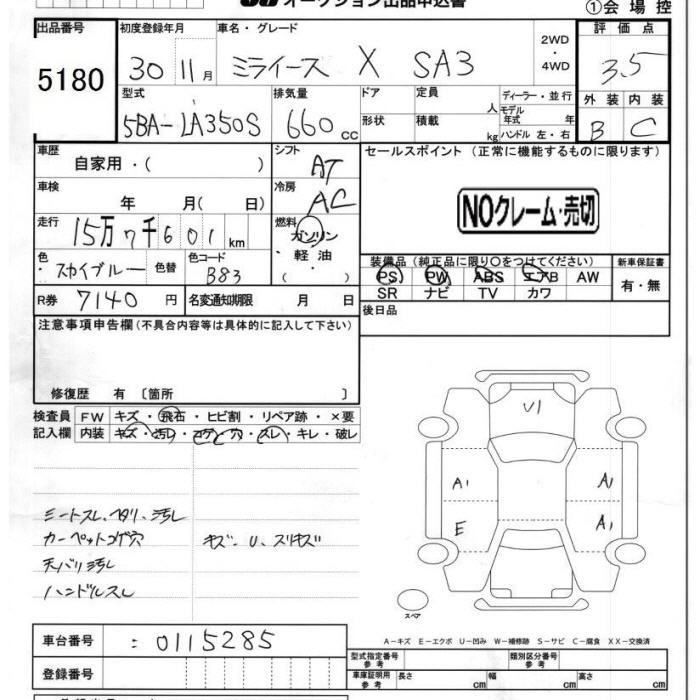 オークション出品申込書
①会場控
出品番号 初度登録年月 車名・グレード 2WD・4WD 評価点
5180 30 11月 ミライース X SA3 3.5
型式 排気量 ドア 定員 人 ディーラー・並行 外装 内装
5BA-LA350S 660cc 形状 積載 kg モデル年式 年 ハンドル 左・右 B C
車歴 自家用・( ) シフト AT セールスポイント (正常に機能するものに限ります)
車検 年 月( 日) 冷房 AC NOクレーム・売切
走行 15万7千601km 燃料 ガソリン・軽油・( )
色 スカイブルー 色替 色コード B83 装備品(純正品に限り○をつけてください) 新車保証書
PS PW ABS エアB AW 有・無
R券 7140円 名変通知期限 月 日 SR ナビ TV カワ
注意事項申告欄(不具合内容等は具体的に記入して下さい) 後日品
修復歴 有 〔箇所 〕
検査員 FW キズ・飛石・ヒビ割・リペア跡・×要
記入欄 内装 キズ・汚れ・コゲ・穴・スレ・キレ・破レ
U1
A1 A1
E A1
シートスレ、ヘタリ、汚レ
カーペットコゲ穴 キズ・U、スリキズ
天バリ汚レ
ハンドルスレ
スペア
A-キズ E-エクボ U-凹み W-補修跡 S-サビ C-腐食 XX-交換済
車台番号 : 0115285
型式指定番号 参考 類別区分番号 参考
登録番号 車庫証明用 参考 長さ cm 幅 cm 高さ cm